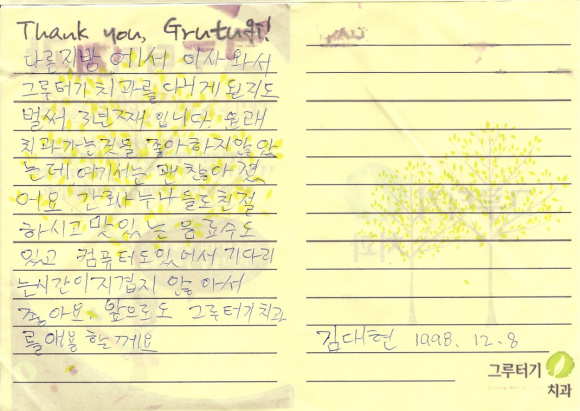 Thank you, Grutugi!
다른지방 에서 이사 와서
그루터기 치과를 다니게 된지도
벌써 3년째 입니다. 원래
치과가는것을 좋아하지않았
는데 여기서는 괜찮아졌
어요 간호사누나들도 친절
하시고 맛있는 음료수도
있고 컴퓨터도있어서 기다리
는시간이지겹지 않아서
좋아요. 앞으로도 그루터기치과
를 애용 할께요
김대현 1998. 12. 8
그루터기
치과